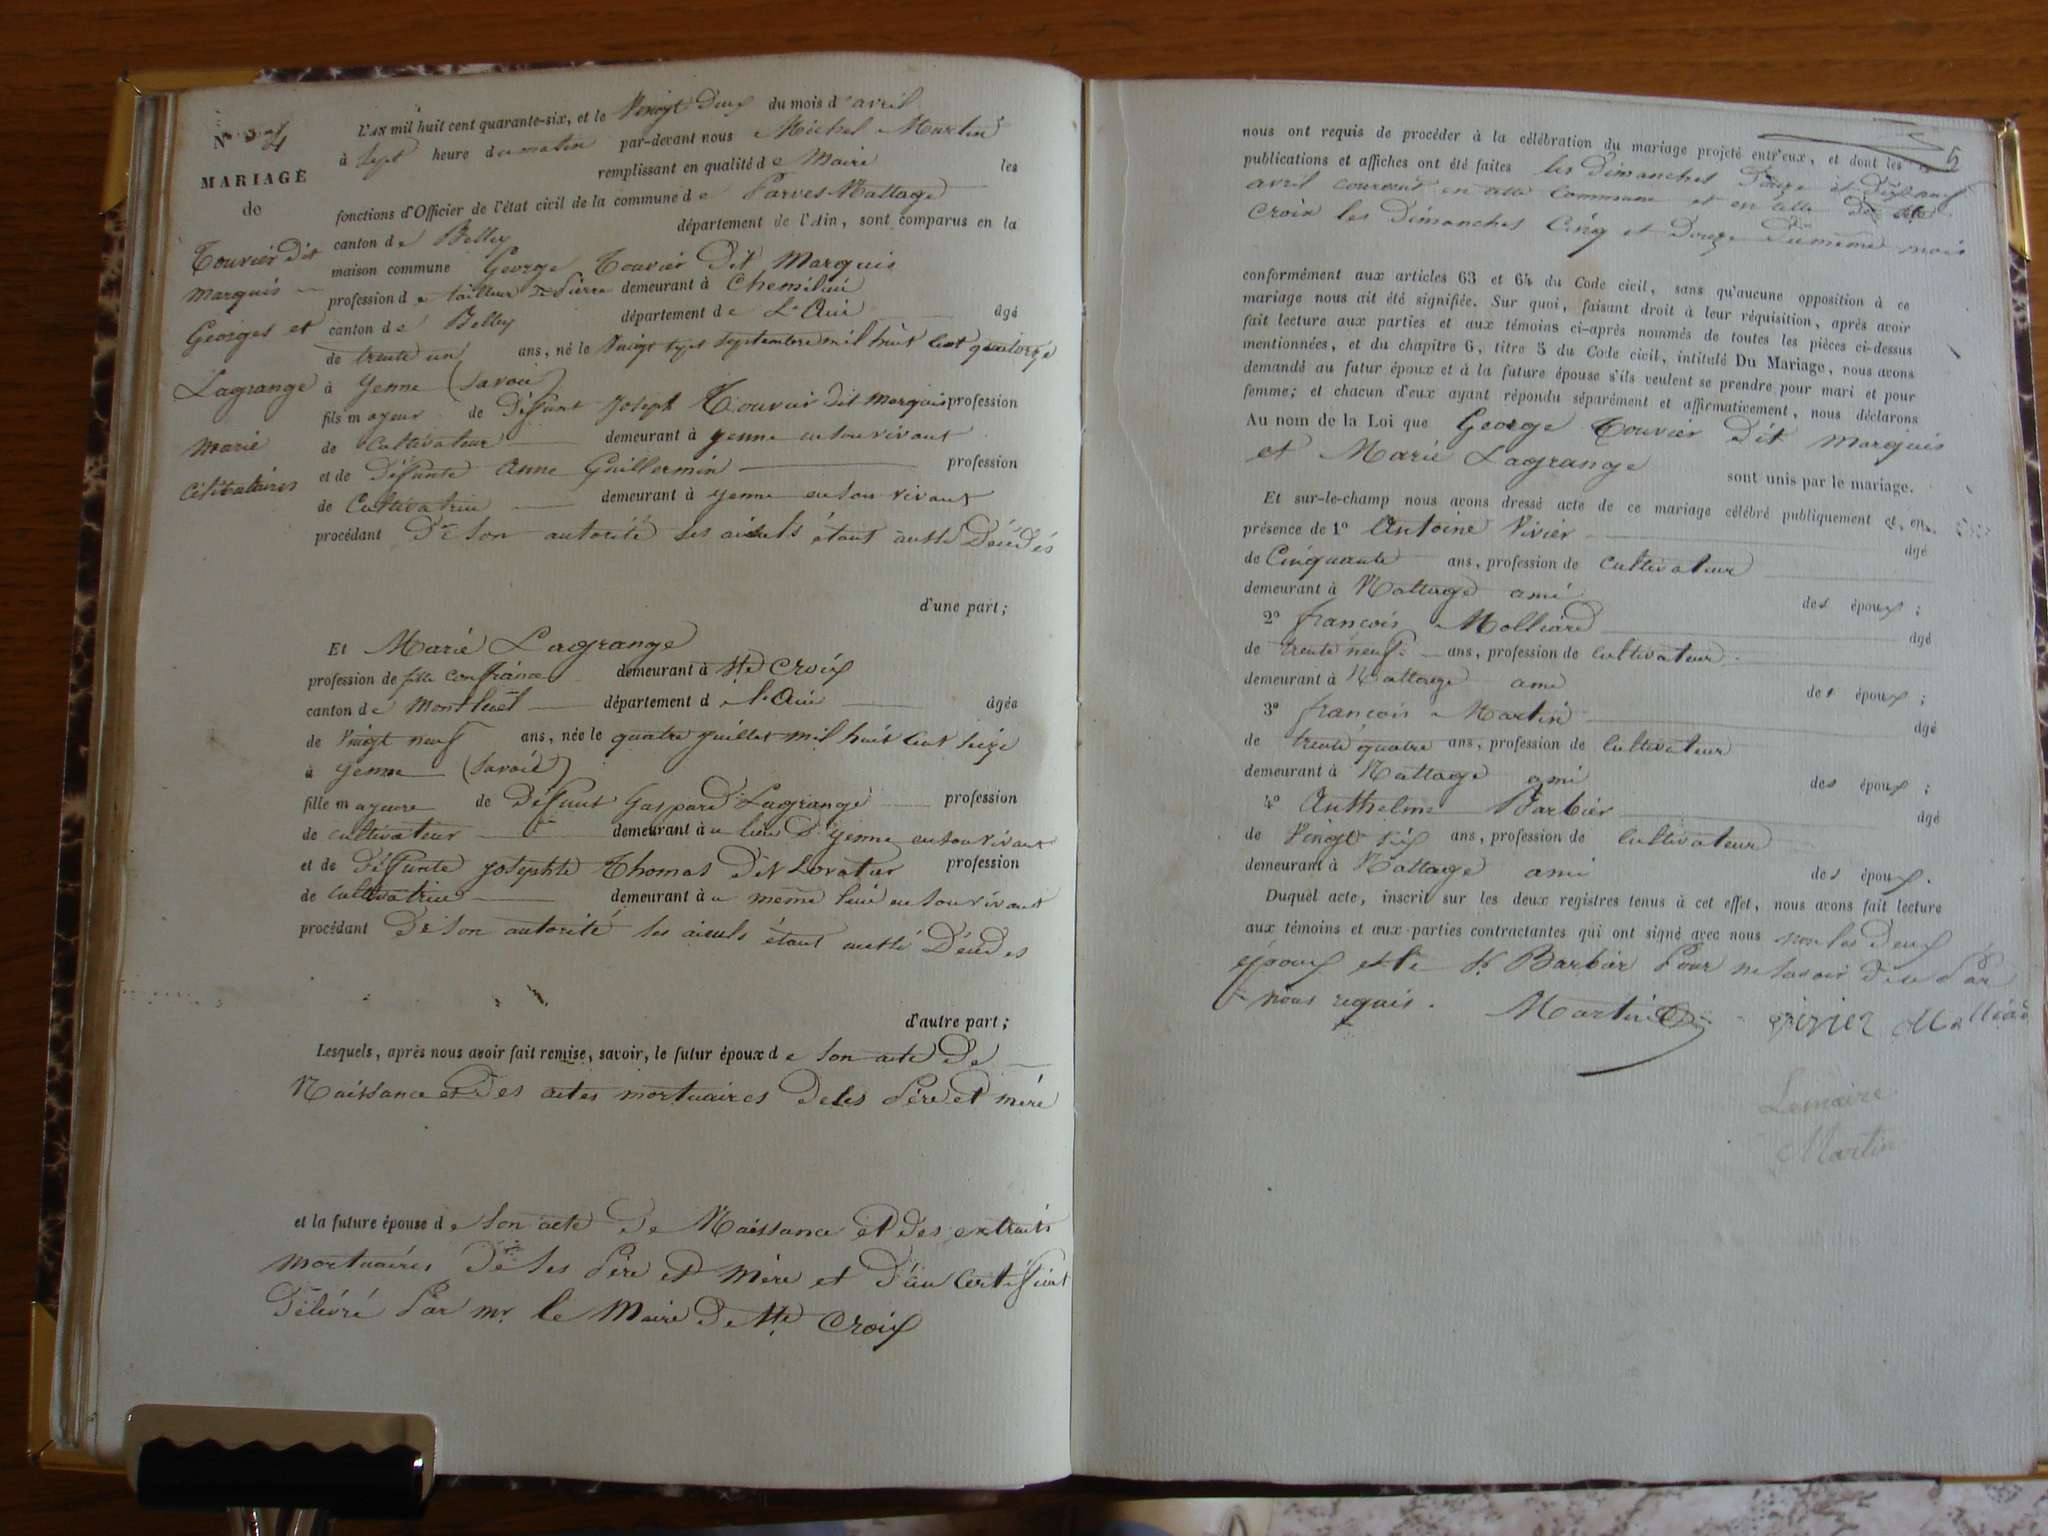 N° 4
MARIAGE
de
Touvier dit
Marquis
Georges et
Lagrange
Marie
Célibataires
L'AN mil huit cent quarante-six, et le Vingt deux du mois d'avril
à Sept heure du matin par-devant nous Michel Martin
remplissant en qualité de Maire les
fonctions d'Officier de l'état civil de la commune de Parves Nattage
canton de Belley département de l'Ain, sont comparus en la
maison commune George Touvier Dit Marquis
profession de tailleur de Pierre demeurant à
canton de Belley département de L'Ain âgé
de trente un ans, né le Vingt sept septembre mil huit cent quatorze
à yenne (Savoie)
fils mayeur de Défunt Joseph Touvier dit Marquis profession
de Cultivateur demeurant à yenne en son vivant
et de Défunte Anne Guillermin profession
de Cultivatrice demeurant à yenne en son vivant
procédant De son autorité ses aieuls étant aussi Décédés
d'une part;
Et Marie Lagrange
profession de fille demeurant à Ste Croix
canton de Montluel département d l'Ain âgée
de Vingt neuf ans, née le quatre juillet mil huit cent seize
à yenne (Savoie)
fille mayeure de Défunt Gaspard Lagrange profession
de cultivateur demeurant à u lieu d'yenne en son vivant
et de Défunte Josephte Thomas Dit Lovatier profession
de Cultivatrice demeurant à u même lieu en son vivant
procédant De son autorité ses aieuls étant aussi Décédés
d'autre part;
Lesquels, après nous avoir fait remise, savoir, le futur époux de son acte De
Naissance et Des actes mortuaires De ses Père et mère
et la future épouse de son acte De Naissance et Des extraits
mortuaires De ses Père et Mère et D'un Certificat
Délivré Par mr. le Maire De Ste Croix
5
nous ont requis de procéder à la célébration du mariage projeté entr'eux, et dont les
publications et affiches ont été faites les Dimanches Douze et Dix neuf
avril courant en cette Commune et en celle de Ste
Croix les Dimanches Cinq et Douze Du même mois
conformément aux articles 63 et 64 du Code civil, sans qu'aucune opposition à ce
mariage nous ait été signifiée. Sur quoi, faisant droit à leur réquisition, après avoir
fait lecture aux parties et aux témoins ci-après nommés de toutes les pièces ci-dessus
mentionnées, et du chapitre 6, titre 5 du Code civil, intitulé Du Mariage, nous avons
demandé au futur époux et à la future épouse s'ils veulent se prendre pour mari et pour
femme; et chacun d'eux ayant répondu séparément et affirmativement, nous déclarons
Au nom de la Loi que George Touvier Dit Marquis
et Marie Lagrange sont unis par le mariage.
Et sur-le-champ nous avons dressé acte de ce mariage célébré publiquement et en
présence de 1° Antoine Vivier âgé
de Cinquante ans, profession de cultivateur
demeurant à Nattage ami des époux;
2° françois Molliard âgé
de trente neuf ans, profession de cultivateur
demeurant à Nattage ami des époux;
3° françois Martin âgé
de trente quatre ans, profession de Cultivateur
demeurant à Nattage ami des époux;
4° Anthelme Barbier âgé
de Vingt six ans, profession de Cultivateur
demeurant à Nattage ami des époux.
Duquel acte, inscrit sur les deux registres tenus à cet effet, nous avons fait lecture
aux témoins et aux parties contractantes qui ont signé avec nous non les Deux
époux et le Sr Barbier Pour ne savoir De ce Par
nous requis. Martin Vivier Molliard
Lemaire
Martin